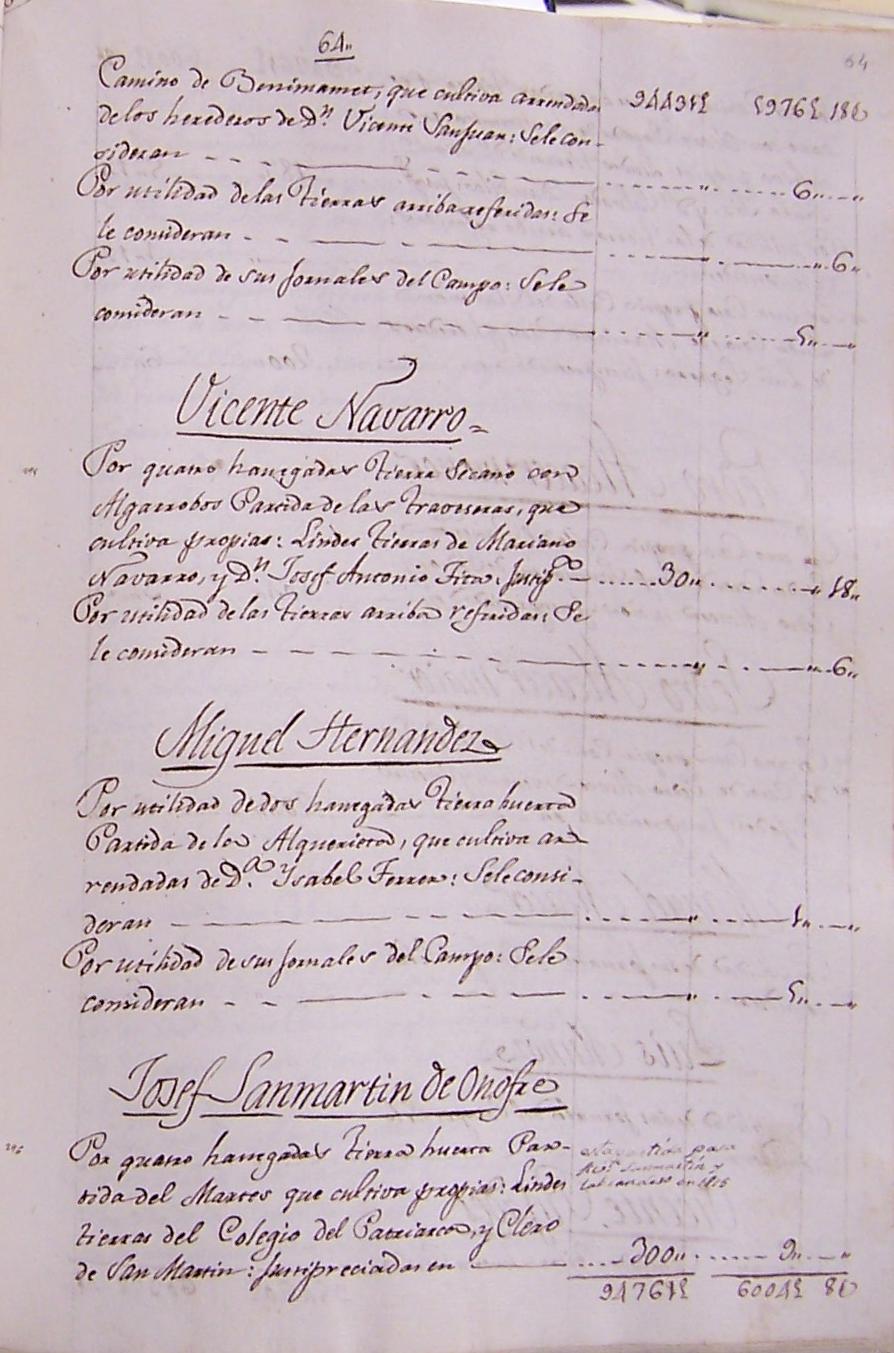 64"
64
Camino de Benimamet, que cultiva arrendada
de los herederos de Dn. Vicente Sanjuan: Sele con-
sideran - - - " - - - 6" - "
Por utilidad delas tierras arriba referidas: Se
le consideran - - - " 6"
Por utilidad de sus Jornales del Campo: Sele
consideran - - - " - - - 5" - "
Vicente Navarro=
Por quatro hanegadas tierra Secano con
Algarrobos Partida de las travesseras, que
cultiva propias: Lindes tierras de Mariano
Navarro, y Dn. Josef Antonio Fita: Justip.do - - - 30" - - - " 18"
Por utilidad delas tierras arriba referidas: Se
le consideran - - - " - - - " 6"
Miguel Hernandez
Por utilidad dedos hanegadas tierra huerta
Partida de la Alquerieta, que cultiva ar-
rendadas de Da. Ysabel Ferrer: Sele consi-
deran - - - " - - - 1" - "
Por utilidad desus Jornales del Campo: Sele
consideran - - - " - - - 5" - "
Josef Sanmartin de Onofre
Por quatro hanegadas tierra huerta Par-
tida del Martes que cultiva propias: Lindes
tierras del Colegio del Patriarca, y Clero
de San Martin: Justipreciadas en - - - 300" - - - 9" - "
esta partida pasa